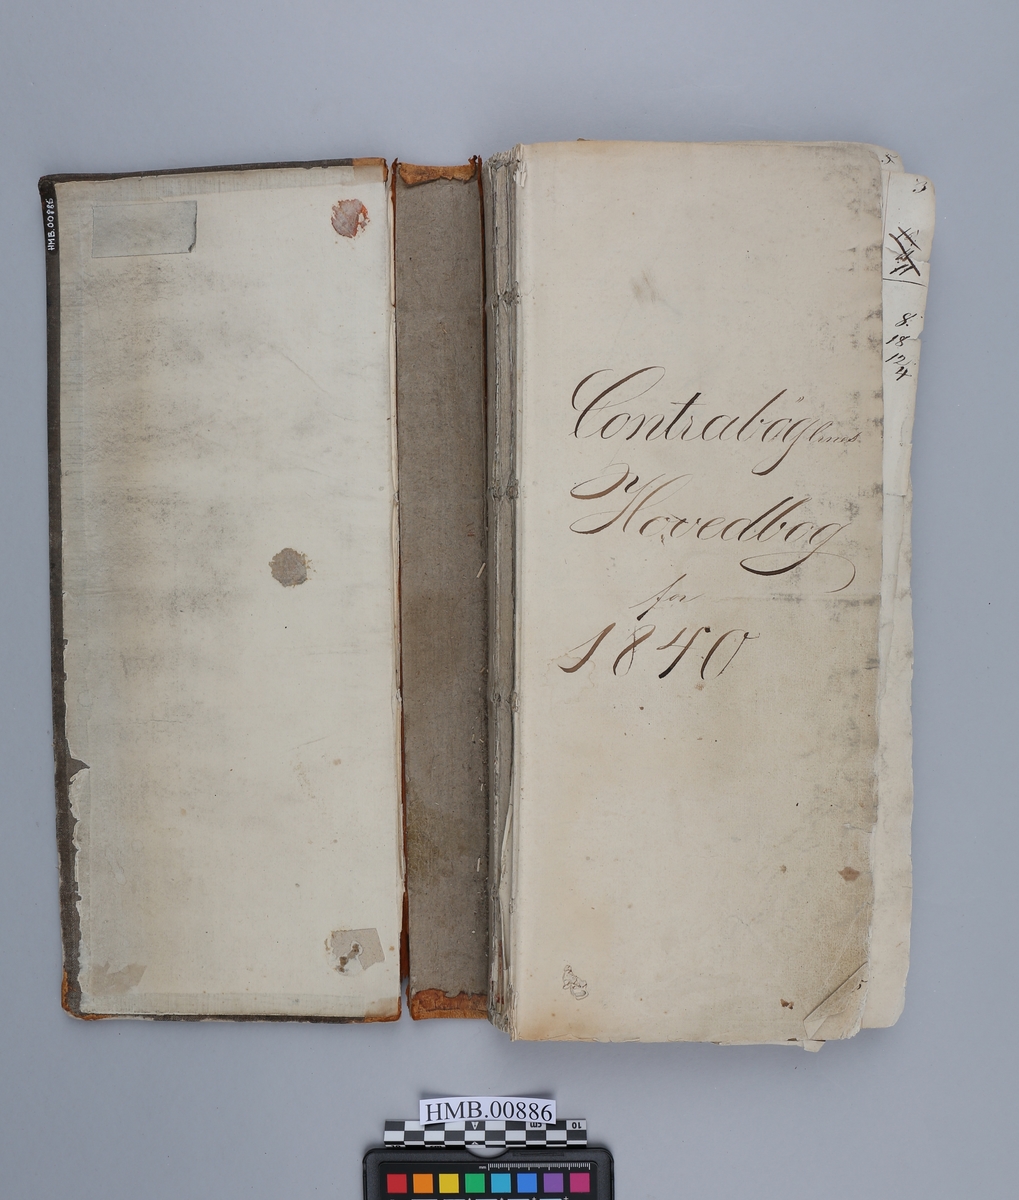 HMB.00886
Contrabøgernes
Hovedbog
for
1840
3
8.
18
12
4
HMB.00886
cm
A
10